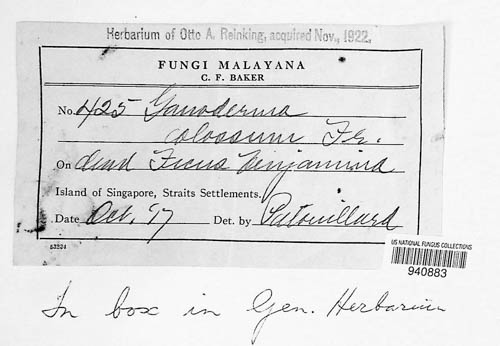 Herbarium of Otto A. Reinking, acquired Nov., 1922.
FUNGI MALAYANA
C. F. BAKER
No. 425 Ganoderma
colossum Fr.
On dead Ficus benjamina
Island of Singapore, Straits Settlements.
Date Oct. '17 Det. by Patouillard
53234
US NATIONAL FUNGUS COLLECTIONS
940883
In box in Gen. Herbarium